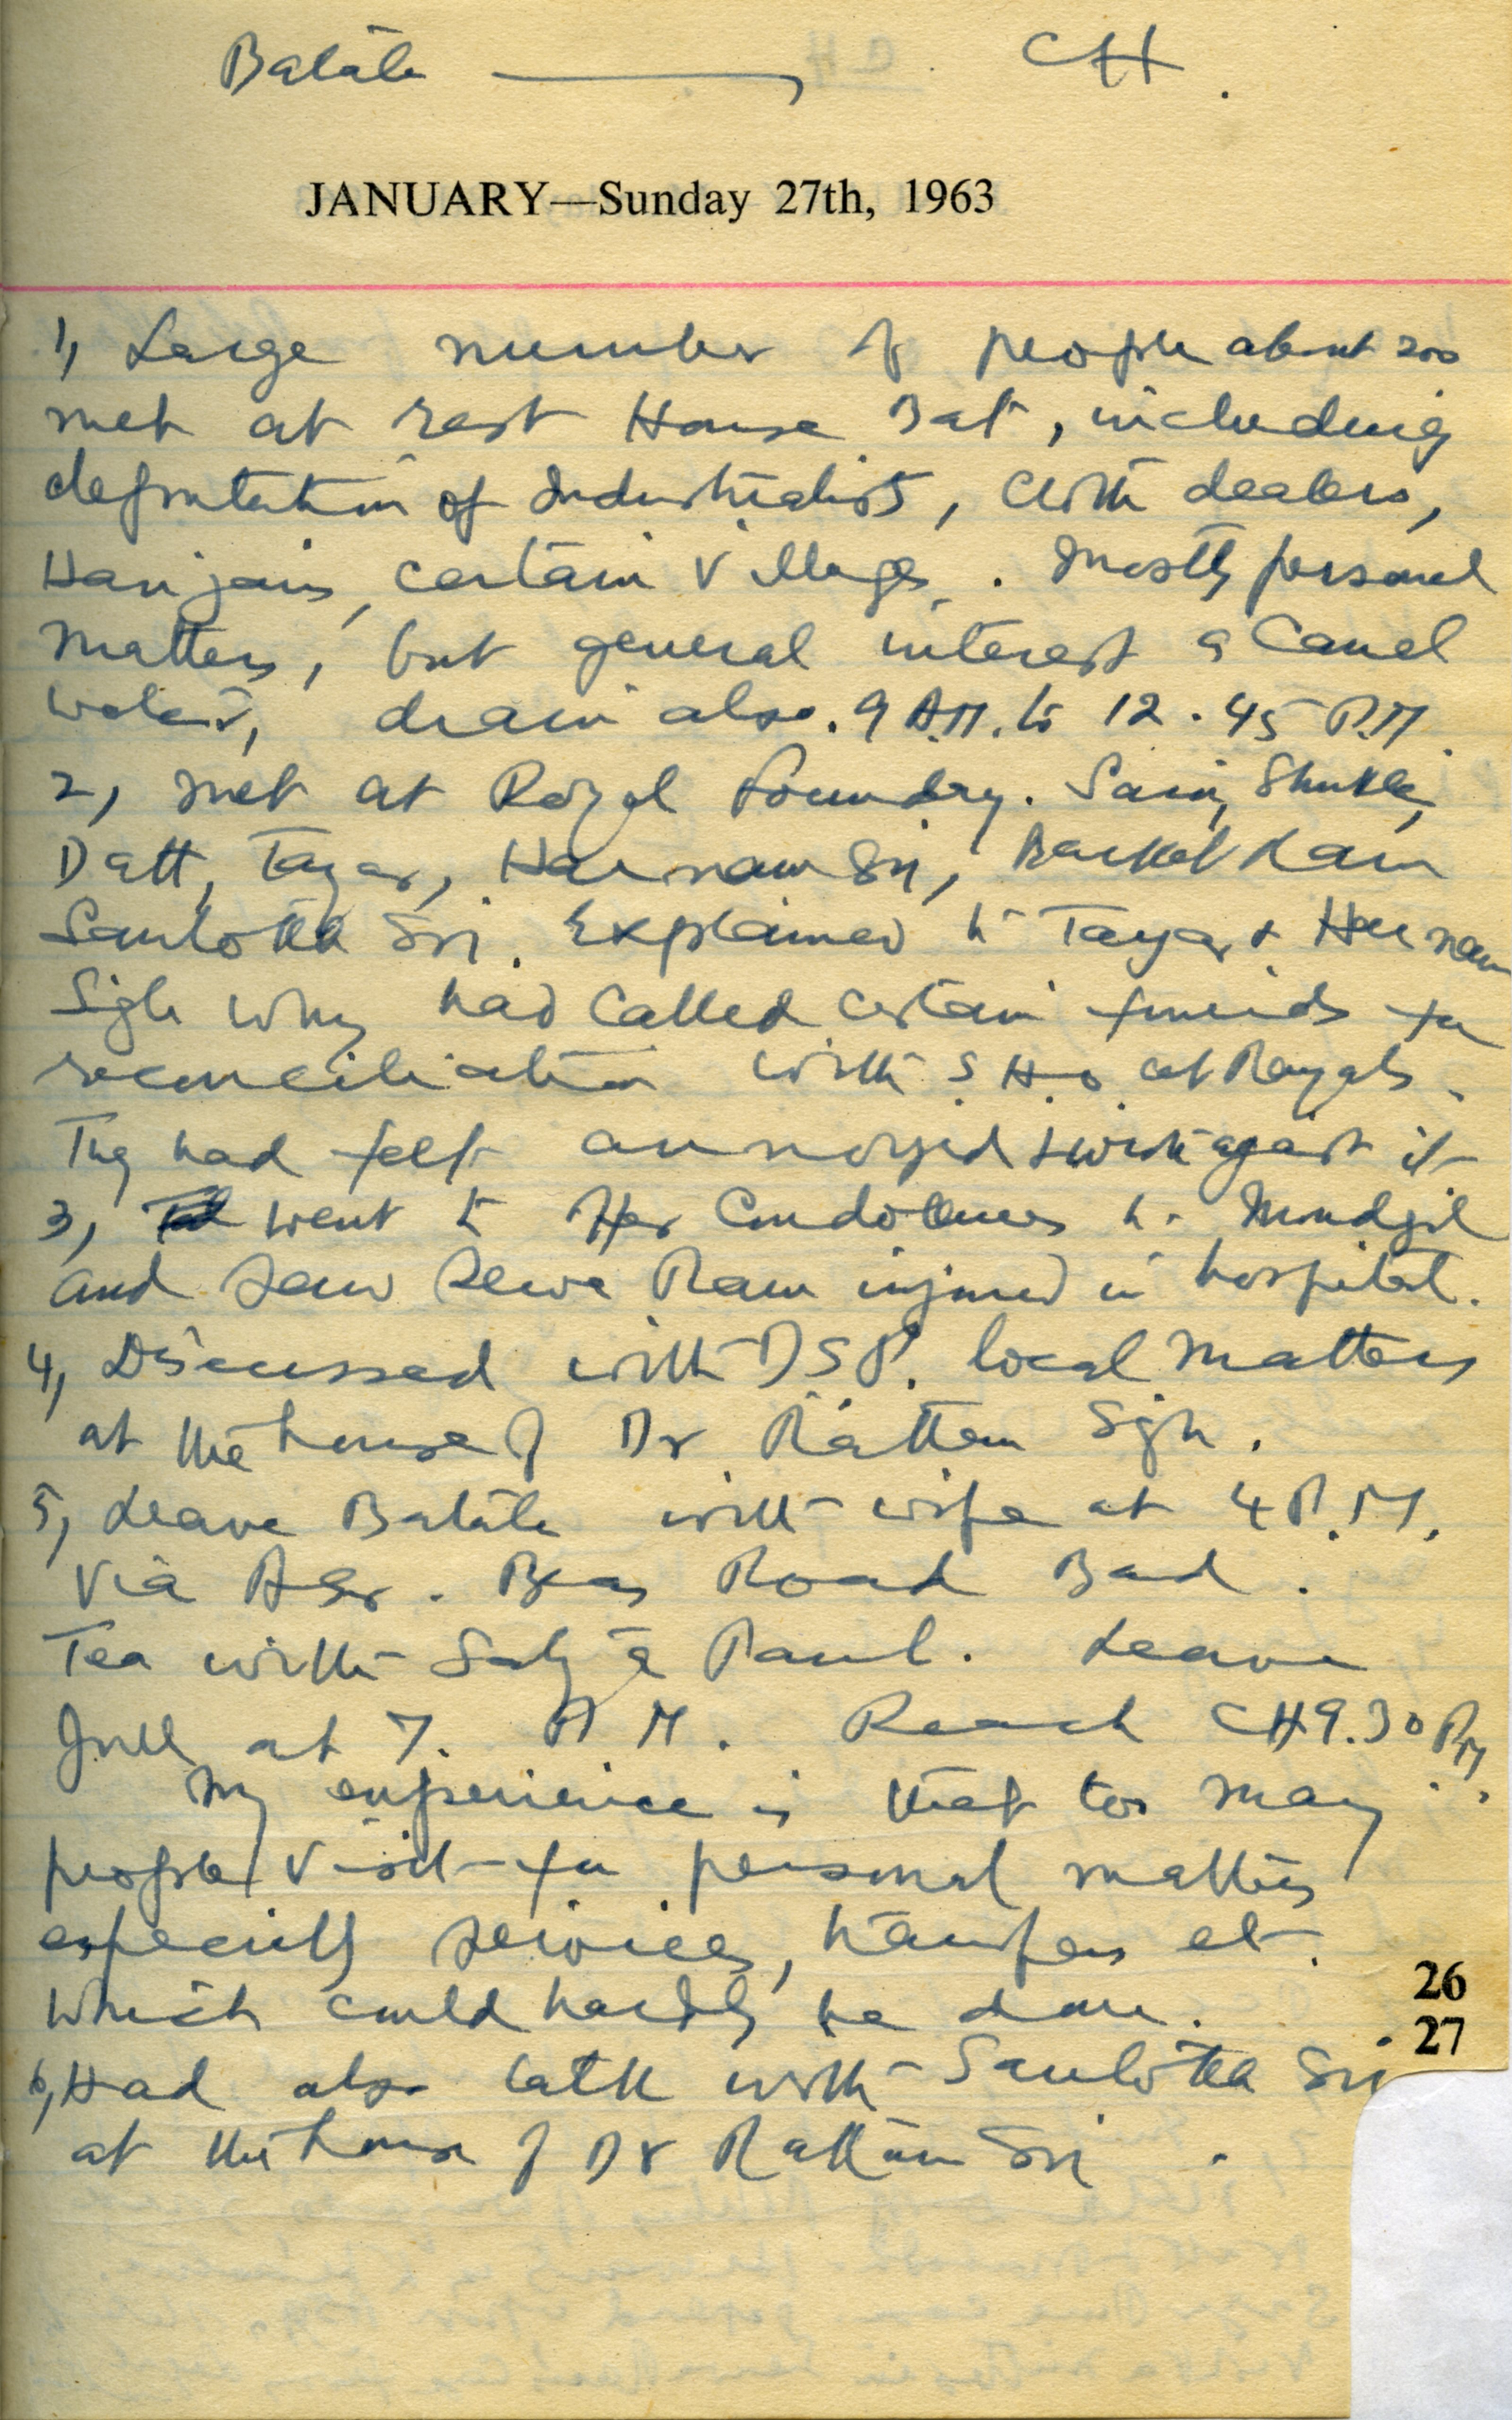 Batala ——, CH.
JANUARY—Sunday 27th, 1963
1, Large number of people about 200
met at rest House Bat, including
deputation of Industrialists, Cloth dealers,
Harijans, certain Villages. Mostly personal
matters, but general interest a Canal
water, drain also. 9 A.M. to 12.45 P.M.
2, Met at Royal Foundry. Saini, Shukla,
Datt, Tayar, Harnam Sri, Barkat Ram
Santokh Sri. Explained to Tayar & Harnam
Sigh why had called certain friends for
reconciliation with S.H.O. at Royals.
They had felt annoyed & against it
3, went to Condolences to Mudgil
and saw Sewa Ram injured in hospital.
4, Discussed with D.S.P. local matters
at the house of Dr Rattan Sgh.
5, Leave Batala with wife at 4 P.M.
Via ASr. Beas Road Bad.
Tea with Satya Paul. Leave
Jull at 7. A M. Reach CH 9.30 PM.
My experience is that too many
people visit for personal matters
especially services, transfers et.
which could hardly be done.
6, Had also talk with Santokh Sri
at the house of Dr Rattan Sri.
26
27